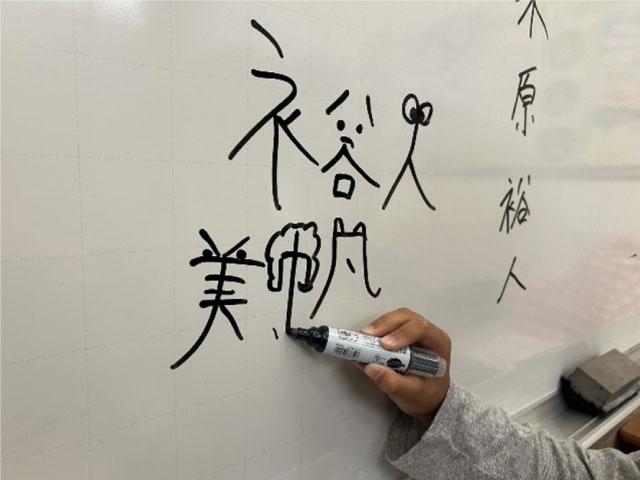 裕人
美帆
原裕人